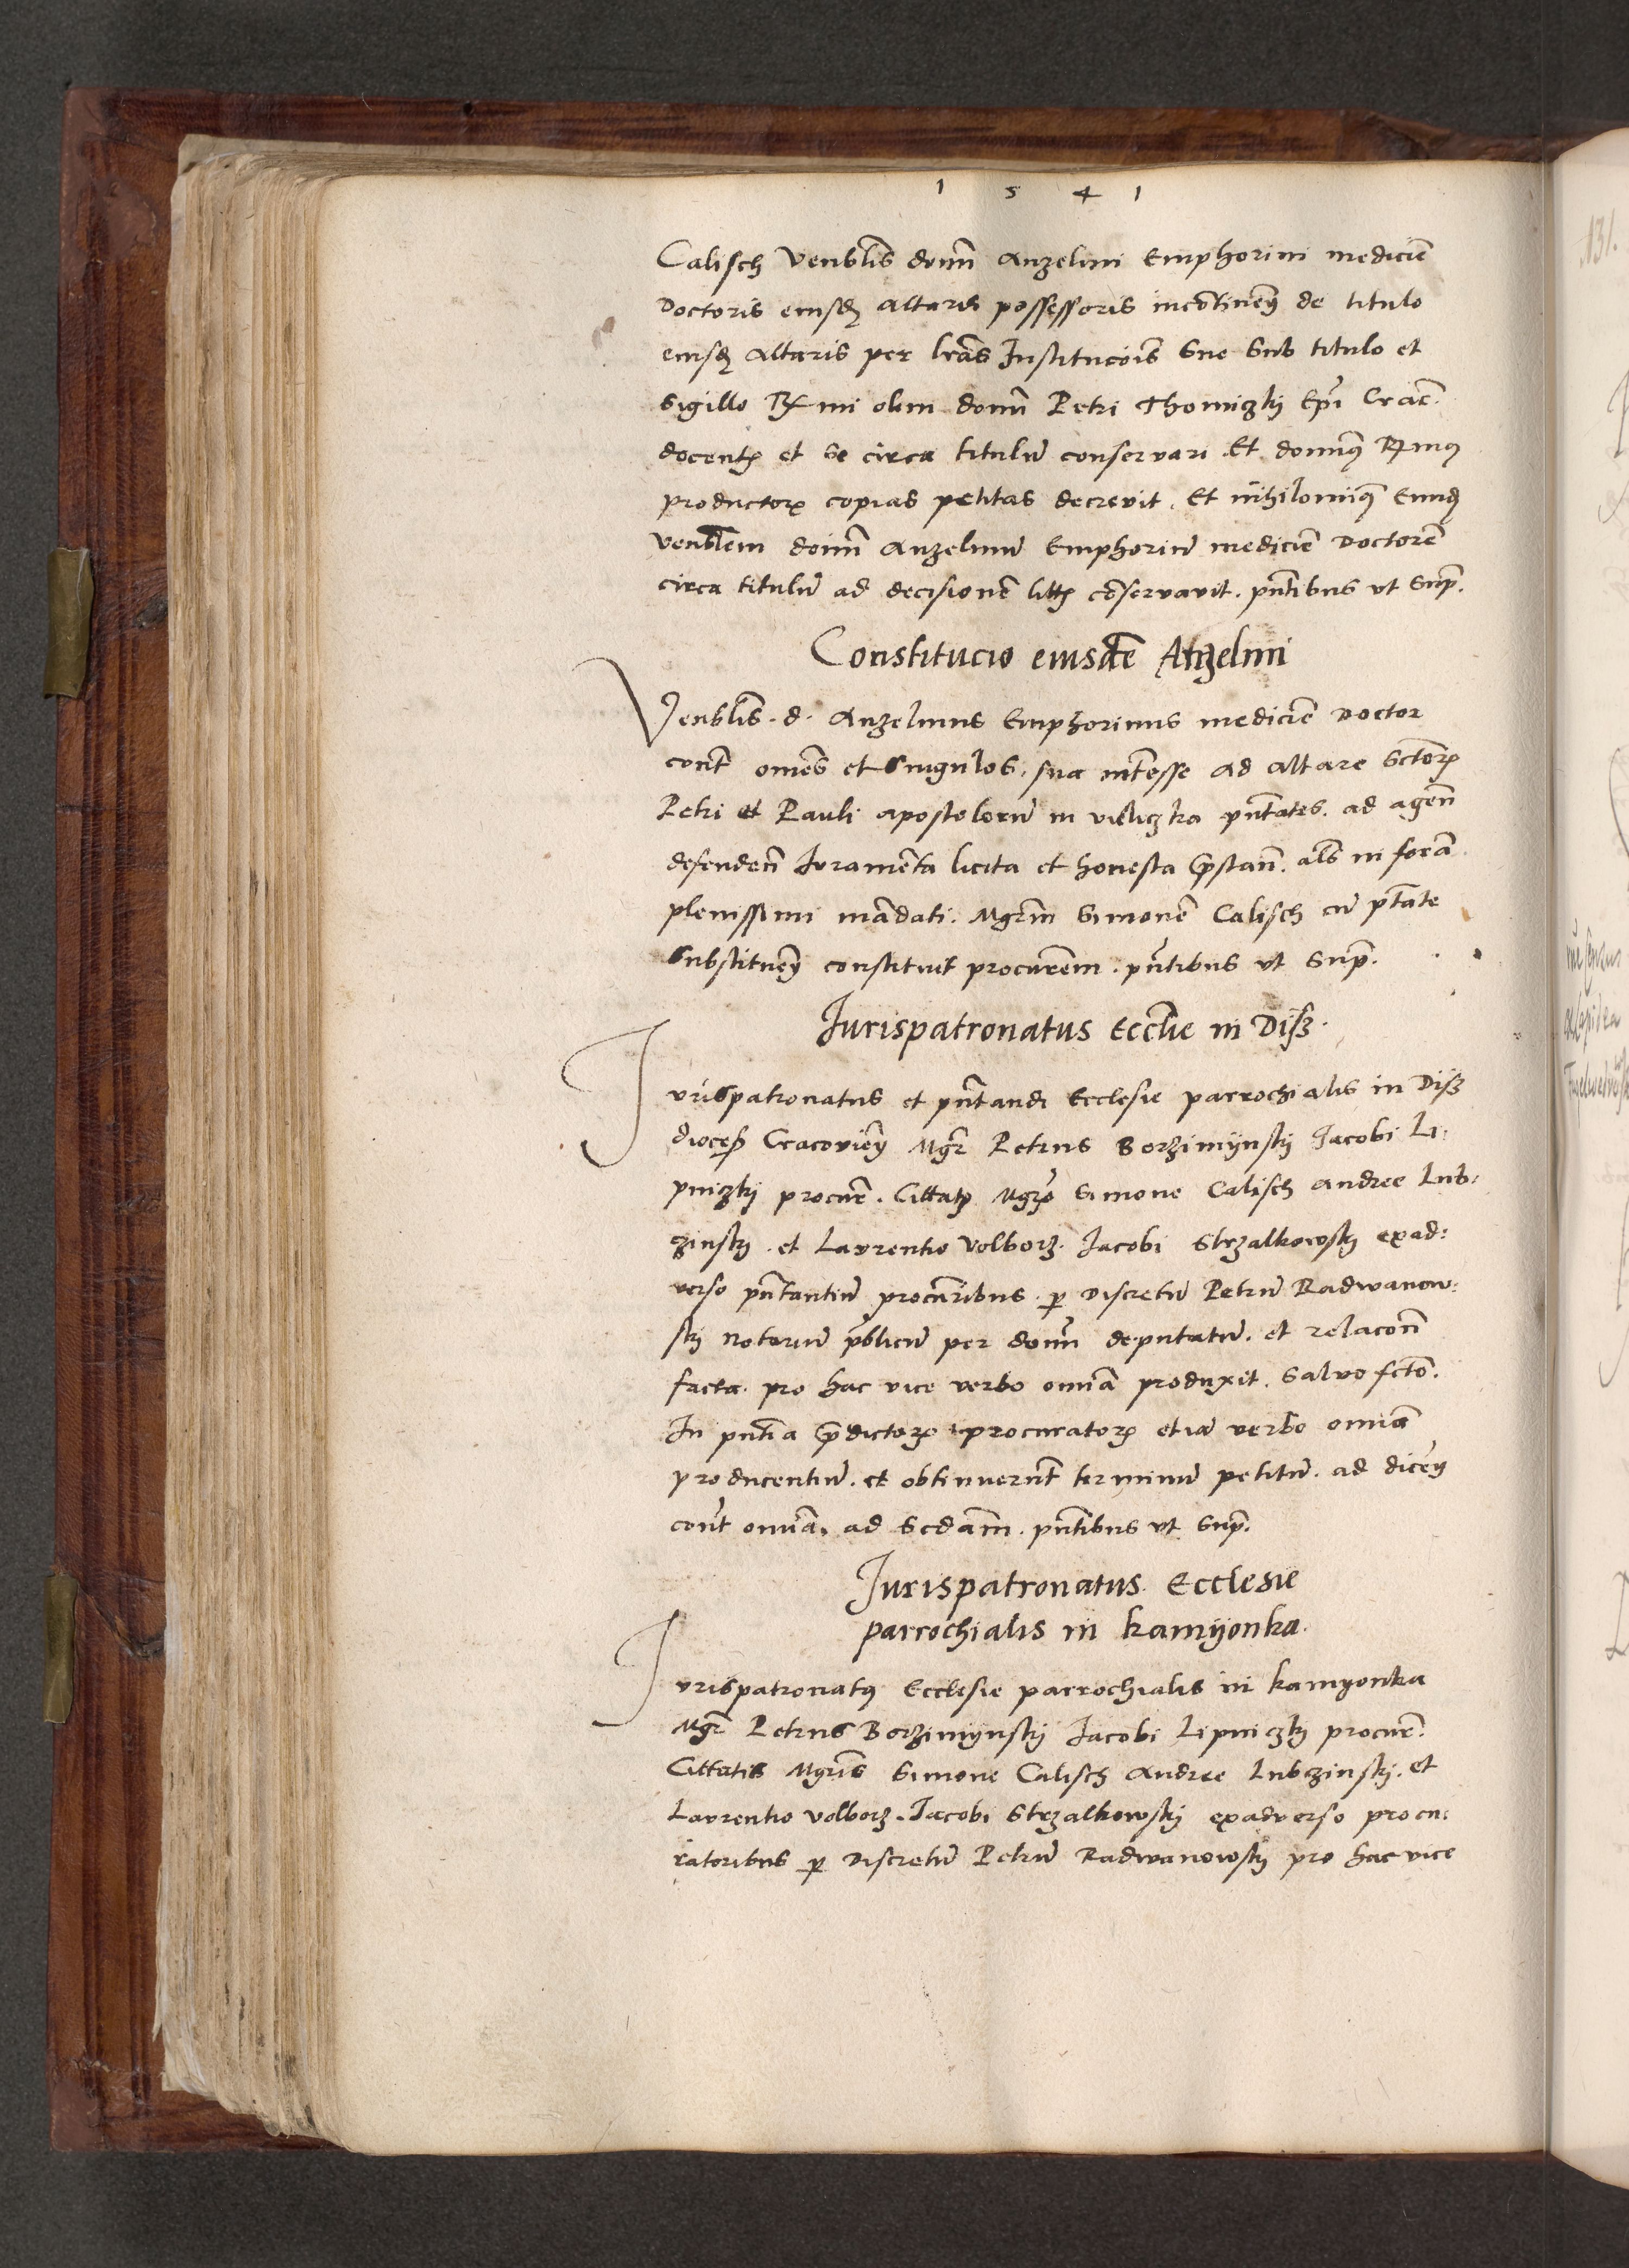 1 5 4 1
Calisch Venblis domi Anzelmi Emphorini medicie
Doctoris eiusdem altaris possessoris incontinenti de titulo
eiusdem altaris per lras Institucois sue sub titulo et
sigillo Rmi olim domi Petri Thomiczkij Epi Crac.
docentem et se circa titulum conservari. Et dominus Rmus
productorum copias petitas decrevit. Et nihilominus Eundem
venblem domi Anzelmum Emphorinum medicie Doctorem
circa titulum ad decisionem litis conservavit. pntibus ut supra.
Constitucio eiusdem Anzelmi
Venblis. d. Anzelmus Emphorinus medicie Doctor
contra omnes et singulos, sua interesse ad altare Sctorum
Petri et Pauli apostolorum in vieliczka pntates. ad agen
defenden Iuramenta licita et honesta prestan. als in forma
plenissimi mandati. Mgrm Simonem Calisch cum ptate
substituendi constituit procurem. pntibus ut supra.
Iurispatronatus Ecclie in Diss.
Iurispatronatus et pntandi Ecclesie parrochialis in Diss
diocesis Cracovien Mgr Petrus Borzimijnskij Jacobi Li:
pniczkij procur. Cittatis Mgro Simone Calisch Andree Lub:
zinskij. et Laurentio Volborz. Jacobi Strzalkowskij exad:
verso pntantium procuribus. per Discretum Petrum Radwanow:
skij notarium publicum per domi deputatum. et relacon
facta. pro hac vice verbo omnia produxit. Salvo fcto.
In pntia predictorum procuratorum etiam verbo omnia
producentium. et obtinuerunt terminum petitum. ad dicen
contra omnia, ad Scdam. pntibus ut supra.
Iurispatronatus Ecclesie
parrochialis in kamijonka.
Iurispatronatus Ecclesie parrochialis in kamyonka
Mgr Petrus Borzimijnskij Jacobi Lipniczkij procur.
Cittatis Mgris Simone Calisch Andree Lubzinskij. et
Laurentio Volborz. Jacobi Strzalkowskij exadverso procu:
ratoribus per Discretum Petrum Radwanowskij pro hac vice
131.